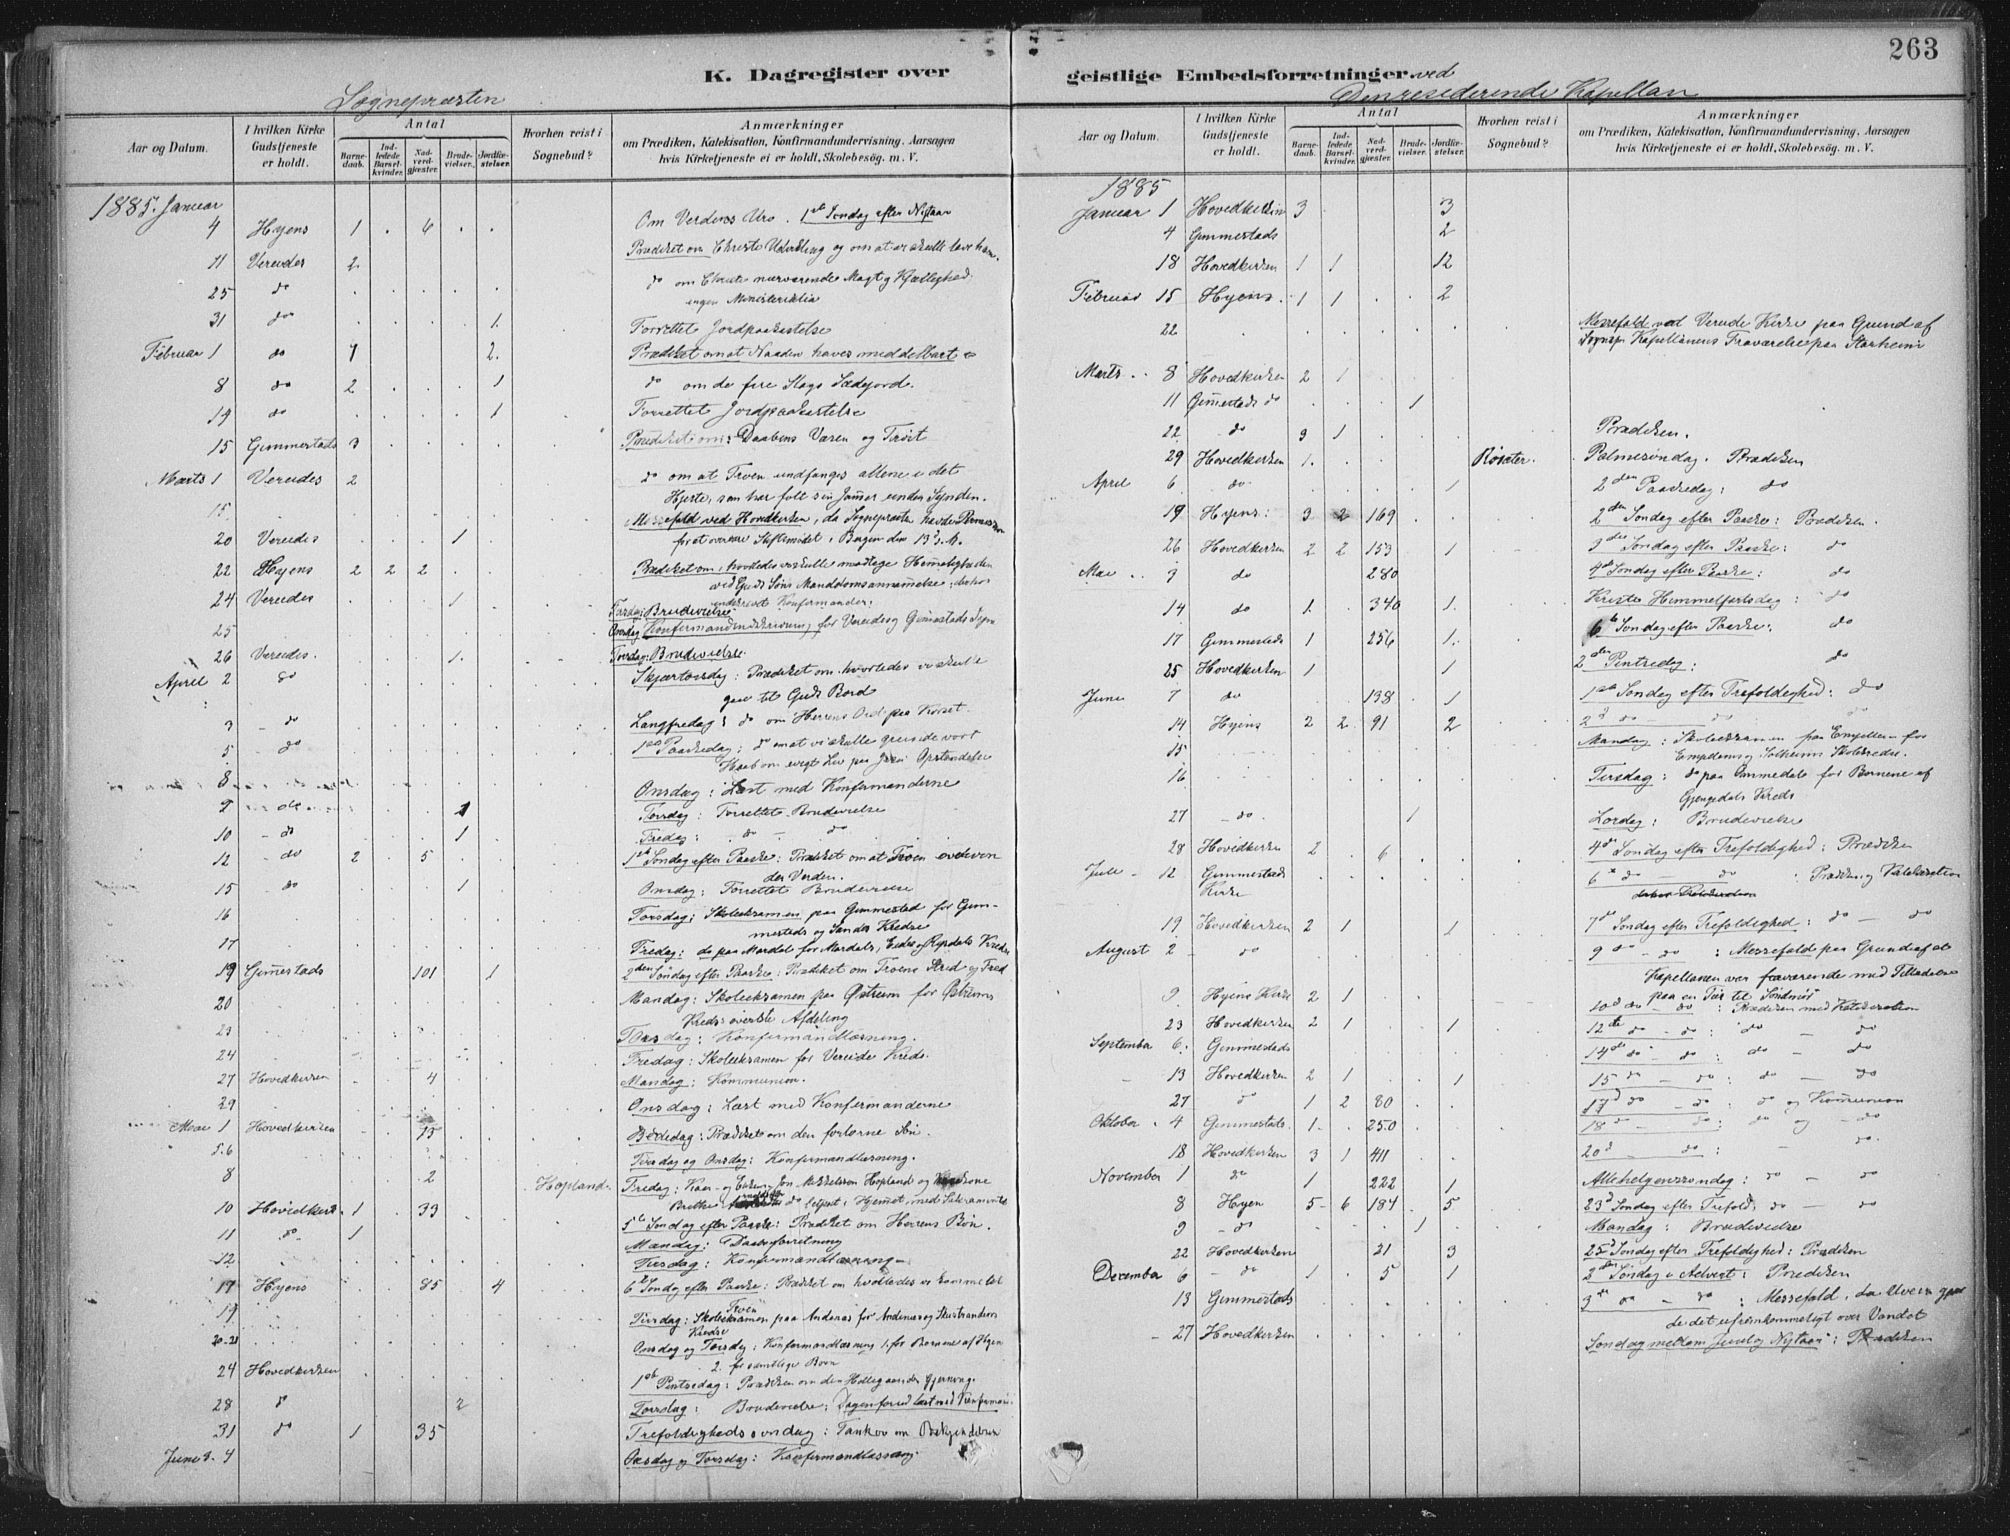 263
K. Dagregister over
Sognepræsten
Aar og Datum.
I hvilken Kirke Gudstjeneste er holdt.
Antal
Barnedaab.
Indledede Barselkvinder.
Nadverdgjæster.
Brudevielser.
Jordfæstelser.
Hvorhen reist i Sognebud?
Anmærkninger
om Prædiken, Katekisation, Konfirmandundervisning, Aarsagen
hvis Kirketjeneste ei er holdt, Skolebesög. m. V.
1885. Januar
4 Hyens 1 . 6 . . Om Verdens Uro. 1ste Søndag efter Nytaar
11 Vereides 2 Prædiket om Christi Udvikling og om at
25 do do om Christi nærværende Magt og Kjærlighed
ingen Ministerialia
31 do 1. Forrettet Jordpaakastelse
Februar 1 do 2. Prædiket om at Naaden haves middelbart
8 do 2 1 do om de fire Slags Sædejord.
do 1 Forrettet Jordpaakastelse
15 Gimmestads 3 Prædiket om: Daabens Væsen og Trøst
Marts 1 Vereides 2 do om at Troen undfanges allene i det
Hjerte, som har følt sin Jammer under Synden.
15 Messefald ved Hovedkirken, da Sognepræsten havde
for at overvære Stiftsmødet i Bergen den 13 d. M.
20 Vereides 1
22 Hyens 2 2 2 Prædiket om, hvorledes vi skulle modtage
24 Vereides 1 Brudevielse
25 Onsdag Konfirmandundervisning for Vereide og Gimestads Sogn
26 Vereides. 1. Torsdag: Brudevielse.
April 2 do Skjærtorsdag: Prædiket om hvorledes vi skulle
gaa til Guds Bord
3 do Langfredag: do om Herrens Ord paa Korset.
5 do 1ste Paaskedag: do om at vi skulle grunde vort
Haab om evigt Liv paa Jesu Opstandelse
8 Onsdag: Læst med Konfirmanderne
9 do 1 Torsdag: Forrettet Brudevielse
10 do 1 Fredag: do do
12 do 2 . 5 1ste Søndag efter Paaske: Prædiket om at Troen overvinder
Verden.
15 do 1 Onsdag: Forrettet Brudevielse
16 Torsdag: Skoleexamen paa Gimmestad for Gimmestads
og Sandes Kredse
17 Fredag: do paa Mardal for Mardals, Eides og Rygdals Kredse
19 Gimestads 101 1 2den Søndag efter Paaske: Prædiket om Troens Strid og Fred
20 Mandag: Skoleexamen paa Østrem for Østrems
Kreds øverste Afdeling
23 Torsdag: Konfirmandlæsning.
24 Fredag: Skoleexamen for Vereide Kreds.
27 Hovedkirken 4 Mandag: Kommunion.
29 Onsdag: Læst med Konfirmanderne
Mai 1 Hovedkirken 15 Bededag: Prædiket om den forlorne Søn.
5.6 Tirsdag og Onsdag: Konfirmandlæsning.
8 2 Hopland. Fredag:
10 Hovedkirk. 1 33 5te Søndag efter Paaske: Prædiket om Herrens Bøn.
11 do 1 Mandag: Daabsforretning
12 Tirsdag: Konfirmandlæsning
17 Hyens 85 4 6te Søndag efter Paaske: Prædiket om hvorledes vi komme til
Troen
19 Tirsdag: Skoleexamen paa Andenæs for Andenæs og
Kredse
20-21 Onsdag og Torsdag: Konfirmandlæsning 1. for Børnene af Hyen
2. for samtlige Børn
24 Hovedkirken 1ste Pintsedag: Prædiken om den Helligaands Gjerning.
28 do 2 Torsdag: Brudevielse: Dagen forud læst med Konfirman.
31 do 1 35 Trefoldigheds søndag: Tanker om
Juni 3. 4 Onsdag og Torsdag: Konfirmandlæsning.
geistlige Embedsforretninger ved
Den residerende Kapellan
Aar og Datum.
I hvilken Kirke Gudstjeneste er holdt.
Antal
Barnedaab.
Indledede Barselkvinder.
Nadverdgjæster.
Brudevielser.
Jordfæstelser.
Hvorhen reist i Sognebud?
Anmærkninger
om Prædiken, Katekisation, Konfirmandundervisning, Aarsagen
hvis Kirketjeneste ei er holdt, Skolebesög. m. V.
1885
Januar 1 Hovedkirken 3 3
4 Gimmestads 2
18 Hovedkirken 1 1 12
Februar 15 Hyens 1 1 2
22 Messefald ved Vereide Kirke paa Grund af
Kapellanens Fraværelse paa Starheim
Marts 8 Hovedkirken 2 1
11 Gimestads do 1
22 do 3 1 Prædiken.
29 Hovedkirken 1. Palmesøndag. Prædiken
April 6 do 1 2den Paaskedag: do
19 Hyens: 3 2 169 2den Søndag efter Paaske: Prædiken.
26 Hovedkirken 2 2 153 1 3die Søndag efter Paaske: do
Mai 3 do 280 4de Søndag efter Paaske: do
14 do 1. 340 1. Kristi Himmelfartsdag: do
17 Gimmestads 1 256 1. 6te Søndag efter Paaske: do
25 Hovedkirken 1 1 2den Pintsedag: do
Juni 7 do 138 1 1ste Søndag efter Trefoldighed: do
14 Hyens 2 2 91 2 2d do do
15 Mandag: Skoleexamen paa for
og Solheims Skolekredse.
16 Tirsdag: do paa Ommedal for Børnene af
Gjengedals Kreds
27 do. 1 Lørdag: Brudevielse
28 Hovedkirken 2 . 6 4de Søndag efter Trefoldighed: Prædiken
Juli 12 Gimmestads
Kirke 6te do do : Prædiken og Katekisation
19 Hovedkirken 2 1 1 7de Søndag efter Trefoldighed: do do
August 2 do 9 do do: Messefald paa Grund af at
Kapellanen var fraværende med Tilladelse
paa en Tur til Søndmør
9 Hyens Kirke 2 1 10d do do Prædiken med Katekisation
23 Hovedkirken 2 1 1 12te do do: do do
September 6. Gimmestads 14de do do: do do
13 Hovedkirken 2 1 1 15 do do: do do
27 do 1 2 80 17d do do: do og Kommunion
Oktober 4 Gimmestads. 1 250 18 do do: do og do
18 Hovedkirken 3 1 411 20d do: do.
November 1 do 1 222 1 Allehelgenssøndag: do do
8 Hyen 5 6 184 5 23d Søndag efter Trefold: do do
9 do 1 Mandag: Brudevielse
22 Hovedkirken 21 3 25d Søndag efter Trefoldighed: Prædiken
December 6 do 1 5 1 2den Søndag i Advent: Prædiken
13 Gimmestads 3die do do: Messefald, da Uveir gjorde
det ufremkommeligt over Vandet
27 Hovedkirken Søndag mellem Juul og Nytaar: Prædiken